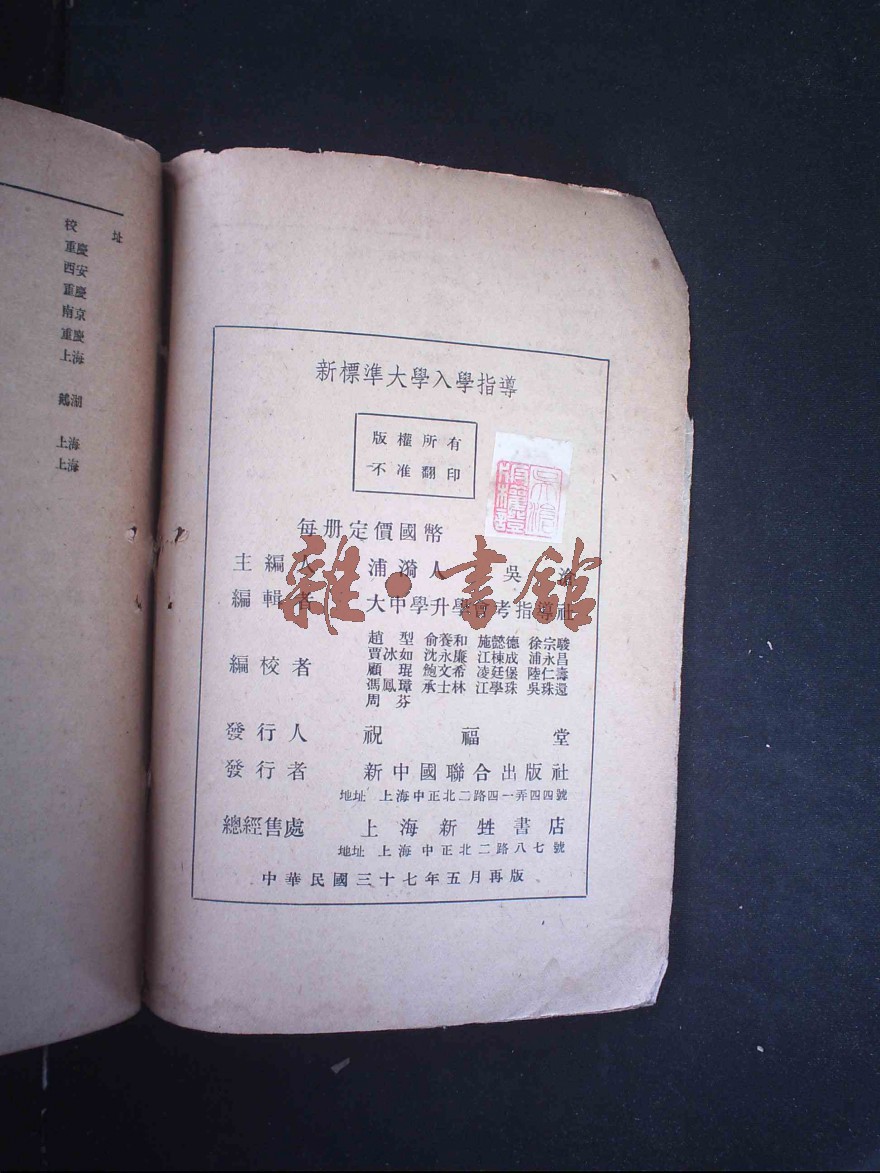 校址
重慶
西安
重慶
南京
重慶
上海
鵝湖
上海
上海
新標準大學入學指導
版權所有
不准翻印
吳滄
版權證
每册定價國幣
主編人 浦漪人 吳滄
編輯者 大中學升學會考指導社
雜·書館
編校者
趙型 俞養和 施懿德 徐宗駿
賈冰如 沈永廉 江棟成 浦永昌
顧琨 鮑文希 凌廷堡 陸仁壽
馮鳳璋 承士林 江學珠 吳珠還
周芬
發行人 祝福堂
發行者 新中國聯合出版社
地址 上海中正北二路四一弄四四號
總經售處 上海新甡書店
地址 上海中正北二路八七號
中華民國三十七年五月再版